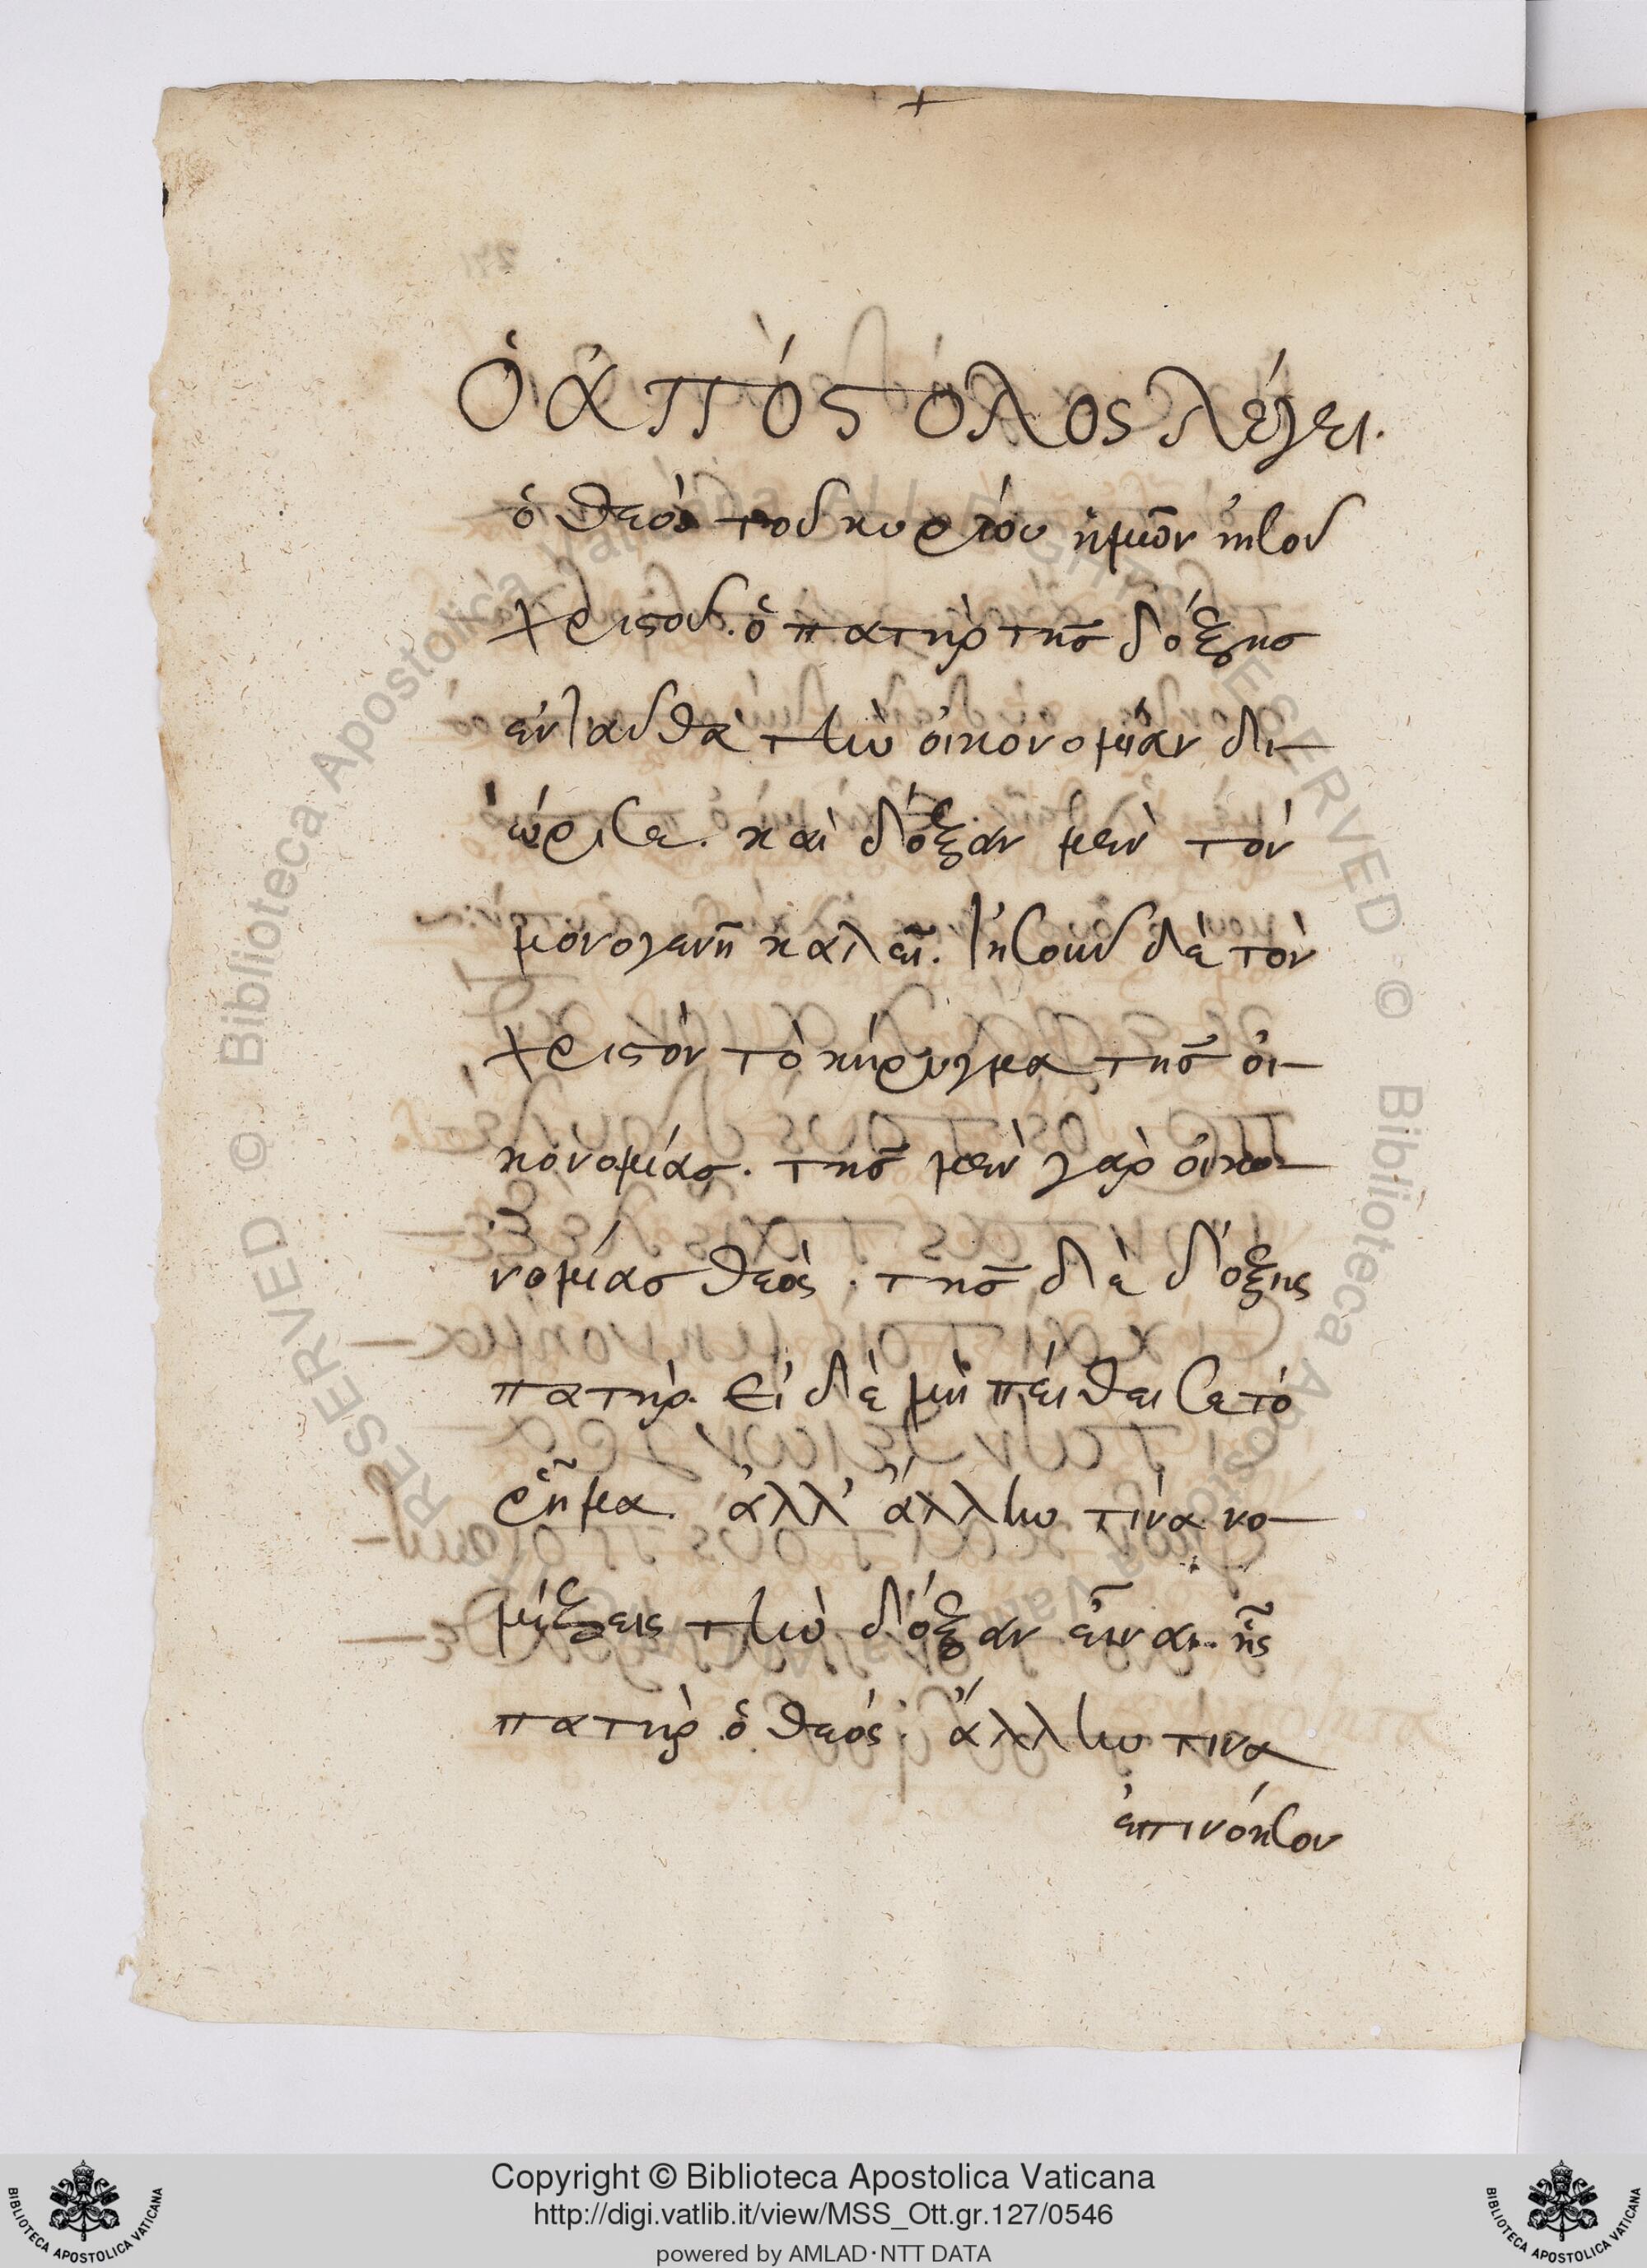 +
ὁ ἀπόστολος λέγει.
ὁ θεὸς τοῦ κυρίου ἡμῶν ἰησοῦ
χριστοῦ. ὁ πατὴρ τῆς δόξης
ἐνταῦθα τὴν οἰκονομίαν δι-
ώρισε. καὶ δόξαν μὲν τὸν
μονογενῆ καλεῖ. ἰησοῦν δὲ τὸν
χριστὸν τὸ κήρυγμα τῆς οἰ-
κονομίας. τῆς μὲν γὰρ οἰκο-
νομίας θεός. τῆς δὲ δόξης
πατήρ. εἰ δὲ μὴ πείθει σε τὸ
ῥῆμα. ἀλλ' ἄλλην τινὰ νο-
μίζεις τὴν δόξαν εἶναι. ἧς
πατὴρ ὁ θεός· ἄλλην τινα
ἐπινόησον
RESERVED © Biblioteca Apostolica Vaticana ALL RIGHTS RESERVED © Biblioteca Apostolica Vaticana
Copyright © Biblioteca Apostolica Vaticana
http://digi.vatlib.it/view/MSS_Ott.gr.127/0546
powered by AMLAD·NTT DATA
BIBLIOTECA APOSTOLICA VATICANA
BIBLIOTECA APOSTOLICA VATICANA